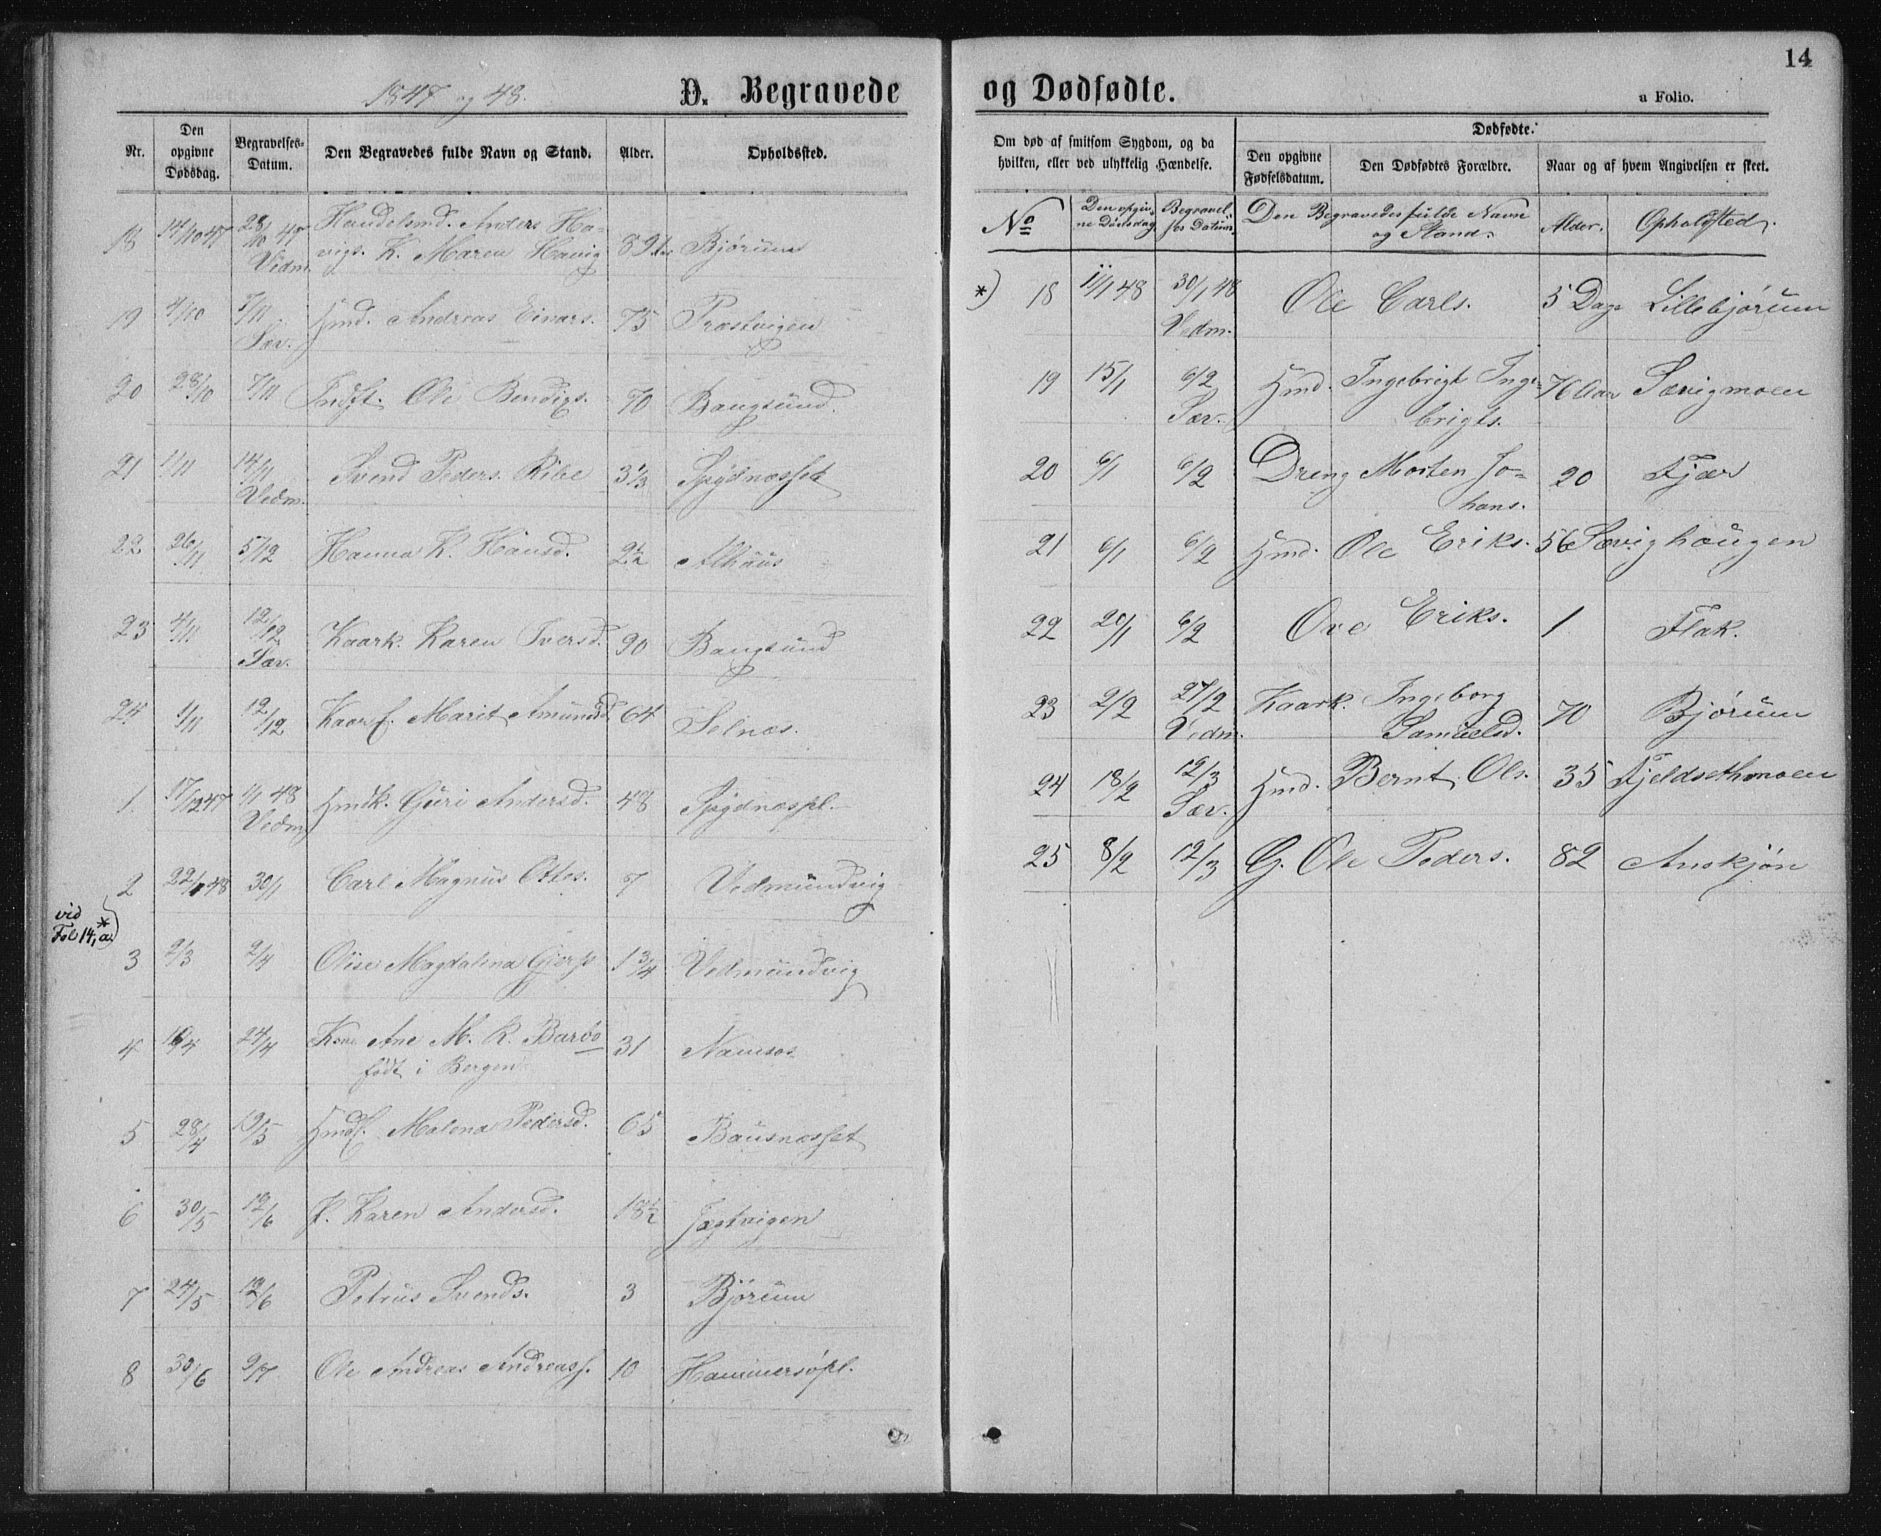 1847 og 48.
D. Begravede
Nr.
Den opgivne Dødsdag.
Begravelses-Datum.
Den Begravedes fulde Navn og Stand.
Alder.
Opholdssted.
18 14/10 47 28/10 47 Vedm. Handelsmd. Anders Ha-
vigs. K. Maren Havig 89 Bjørum
19 4/10 7/11 Sæv. Hmd. Andreas Einars. 75 Præstvigen
20 28/10 7/11 Indst. Ole Bendigs. 70 Bangsund.
21 1/11 14/11 Vedm. Svend Peders. Ribe 3 1/3 Spydnæsset
22 26/11 5/12 Hanna K. Hansd. 2 1/2 Alhaus
23 4/11 12/12 Sæv. Kaark. Karen Iversd. 90 Bangsund
24 1/11 12/12 Kaarf. Marit Amundd 64 Selnæs.
1. 17/12 47 1/1 48 Vedm. Hmdk. Guri Andersd. 48 Spydnæspl.
2 22/1 48 30/1 Carl Magnus Ottos. 7 Vedmundvig
vid
Fol 14, a. *)
3 2/3 2/4 Olise Magdalina 1 3/4 Vedmundvig
4 24/4 Kone Ane M. K. Barbo
født i Bergen 31 Namsos
5 28/4 19/5 Malena Pedersd. 65 Bausnæsset
6 30/5 12/6 P. Karen Andersd. 18 1/2 Jægtvigen
7 24/5 12/6 Petrus Svends. 3 Bjørum
8 30/6 9/7 Ole Andreas Andreass. 10 Hammersøpl.
og Dødfødte.
14
a Folio.
Om død af smitsom Sygdom, og da
hvilken, eller ved ulykkelig Hændelse.
Dødfødte.
Den opgivne Fødselsdatum.
Den Dødfødtes Forældre.
Naar og af hvem Angivelsen er skeet.
No
Den opgiv-
ne Dødsdag
Begravel-
ses Datum.
Den Begravedes fulde Navn
og Stand.
Alder.
Opholdsted.
*) 18 11/1 48 30/1 48 Vedm. Ole Carls. 5 Dage Lillebjørum
19 15/1 6/2 Sæv. Hmd. Ingebrigt Inge-
brigts. 76 Aar Sævigmoen
20 6/1 6/2 Dreng Morten Jo-
hans. 20 Fjær
21 6/1 6/2 Hmd. Ole Eriks. 56 Sævighaugen
22 20/1 6/2 Ove Eriks. 1 Flak.
23 2/2 27/2 Vedm. Kaark. Ingeborg
Samuelsd. 70 Bjørum
24 18/2 12/3 Sæv. Hmd. Bernt Ols. 35 Fjeldsethmoen
25 8/2 12/3 G. Ole Peders. 82 Anskjøn